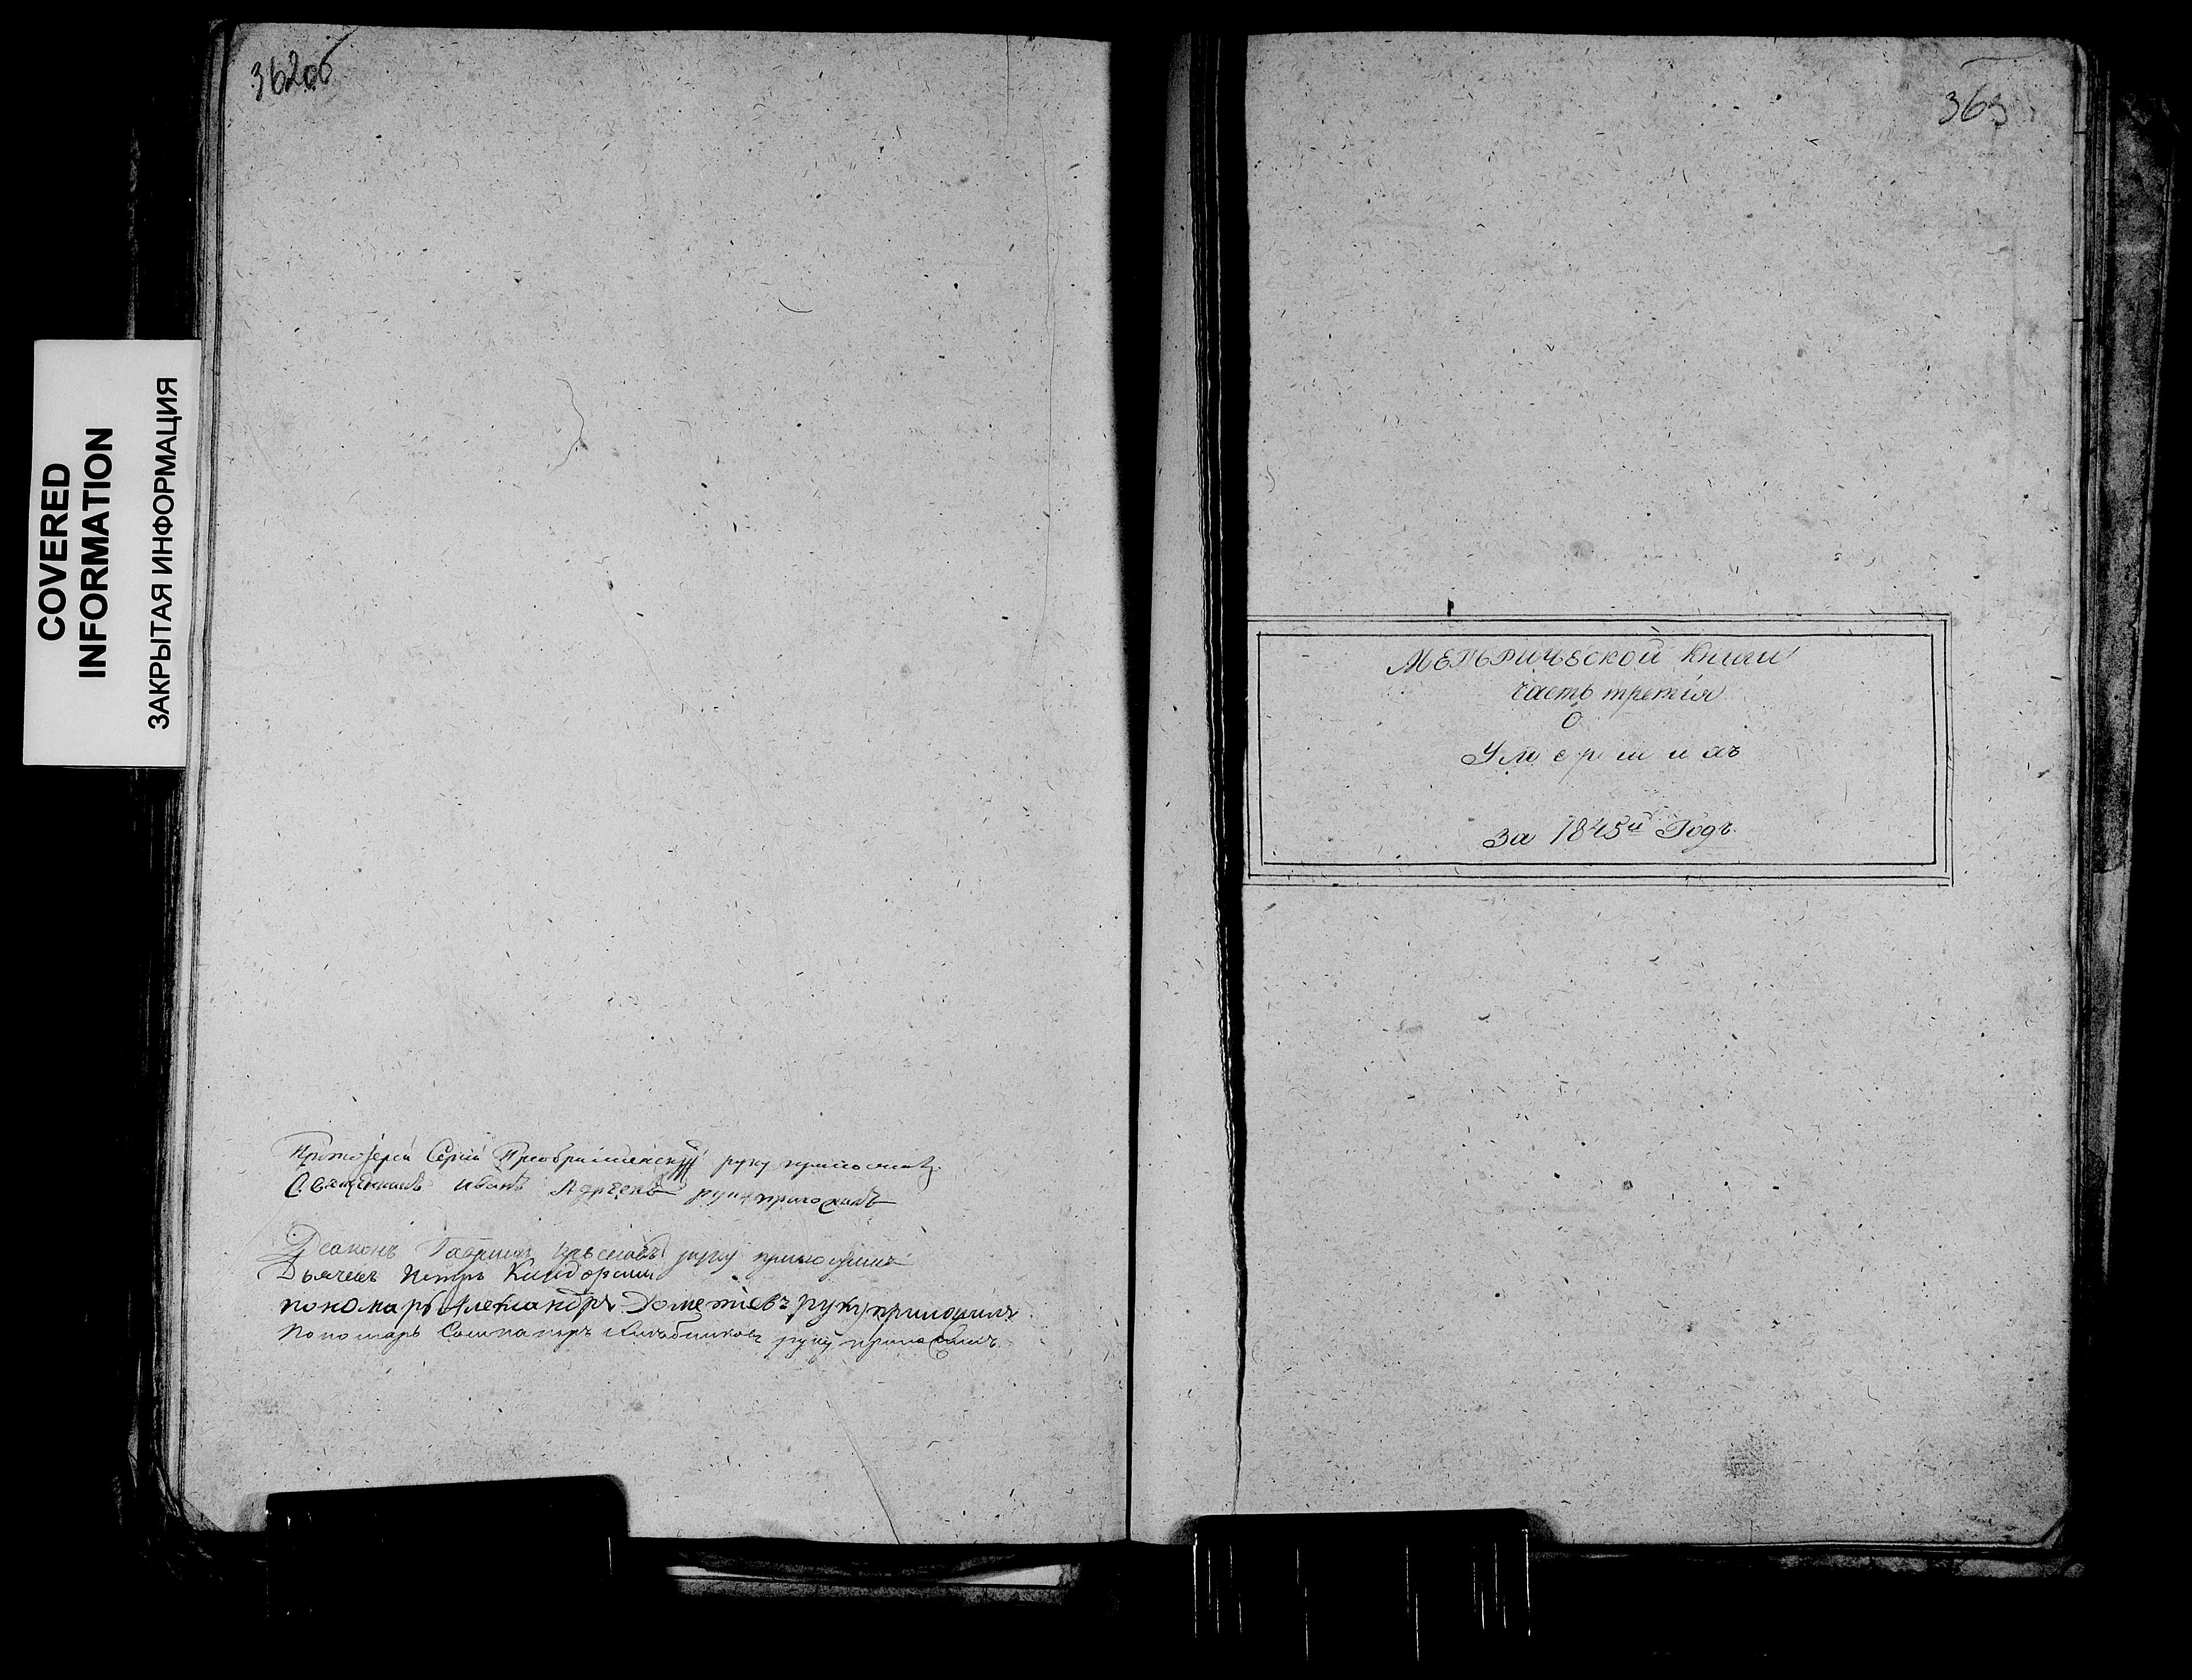 362об
COVERED
INFORMATION
ЗАКРЫТАЯ ИНФОРМАЦИЯ
Протоіерей Сергій Преображенскій руку приложилъ
Священникъ Иванъ руку приложилъ
Діаконъ Гавріилъ руку приложилъ
Дьячекъ Петръ
пономарь Александръ Дометіевъ руку приложилъ
Пономарь руку приложилъ
363
Метрической книги
часть третія
О
Умершихъ
За 1845й Годъ